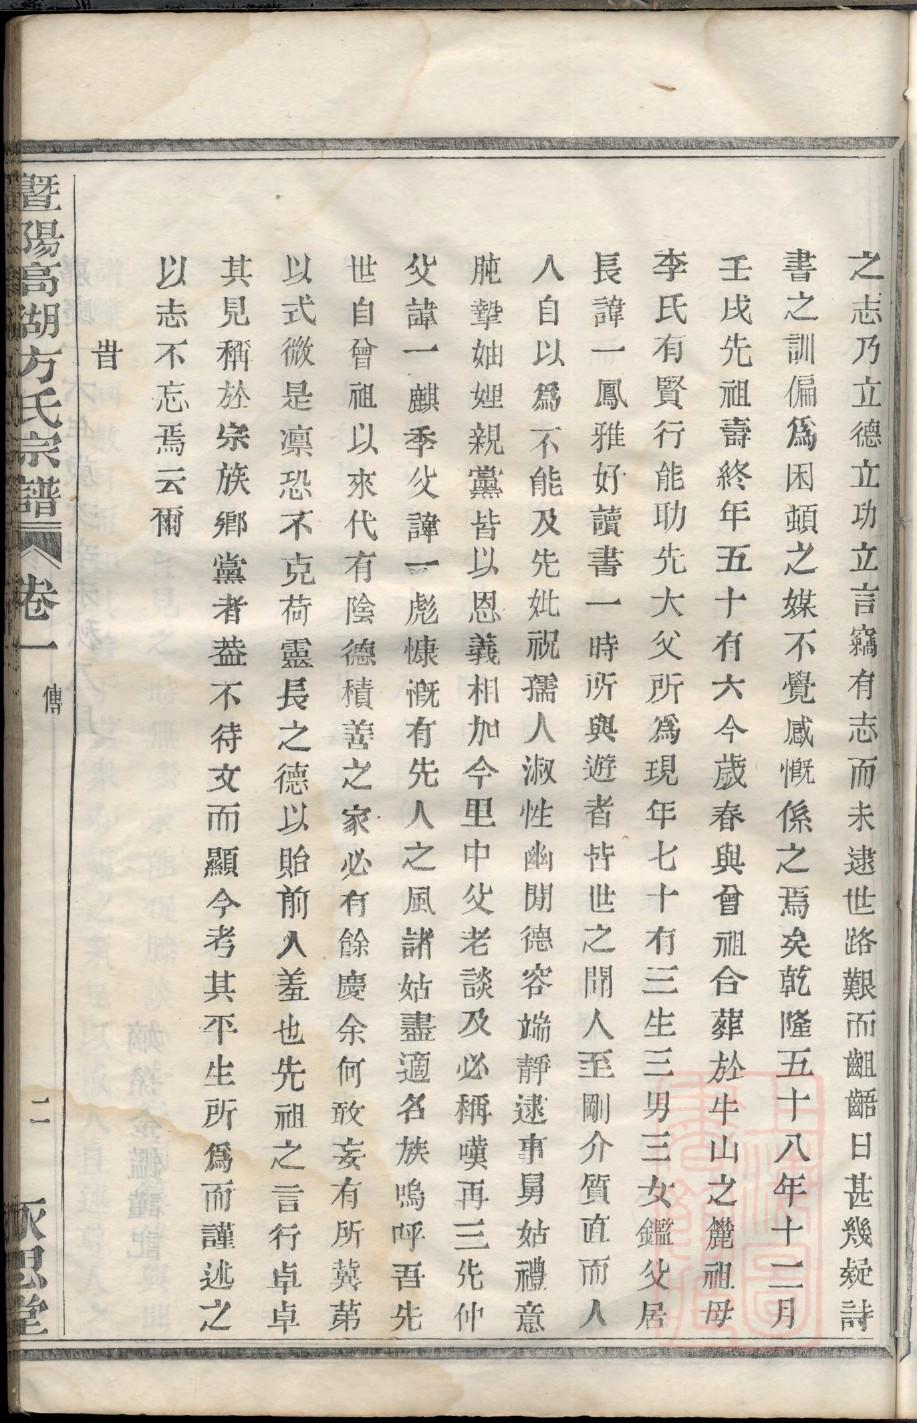 之志乃立德立功立言竊有志而未逮世路艱而齟齬日甚幾疑詩
書之訓偏爲困頓之媒不覺感慨係之焉矣乾隆五十八年十二月
壬戌先祖壽終年五十有六今歲春與曾祖合葬於牛山之麓祖母
李氏有賢行能助先大父所爲現年七十有三生三男三女鑑父居
長諱一鳳雅好讀書一時所與遊者皆世之聞人至剛介質直而人
人自以爲不能及先妣祝孺人淑性幽閒德容端靜逮事舅姑禮意
肫摯妯娌親黨皆以恩義相加今里中父老談及必稱嘆再三先仲
父諱一麒季父諱一彪慷慨有先人之風諸姑盡適名族嗚呼吾先
世自曾祖以來代有陰德積善之家必有餘慶余何敢妄有所冀第
以式微是凛恐不克荷靈長之德以貽前人羞也先祖之言行卓卓
其見稱於宗族鄉黨者葢不待文而顯今考其平生所爲而謹述之
以志不忘焉云爾
旹
暨陽高湖方氏宗譜 卷一 傳 二 永思堂